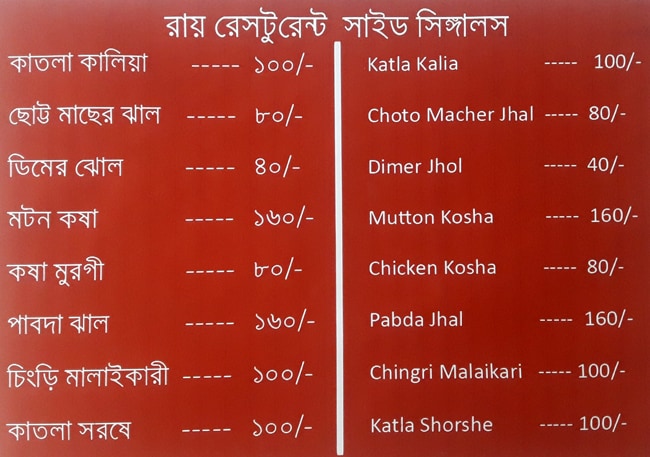 রায় রেসটুরেন্ট সাইড সিঙ্গালস
কাতলা কালিয়া ----- ১০০/-
ছোট্ট মাছের ঝাল ----- ৮০/-
ডিমের ঝোল ----- ৪০/-
মটন কষা ----- ১৬০/-
কষা মুরগী ----- ৮০/-
পাবদা ঝাল ----- ১৬০/-
চিংড়ি মালাইকারী ----- ১০০/-
কাতলা সরষে ----- ১০০/-
Katla Kalia ----- 100/-
Choto Macher Jhal ----- 80/-
Dimer Jhol ----- 40/-
Mutton Kosha ----- 160/-
Chicken Kosha ----- 80/-
Pabda Jhal ----- 160/-
Chingri Malaikari ----- 100/-
Katla Shorshe ----- 100/-